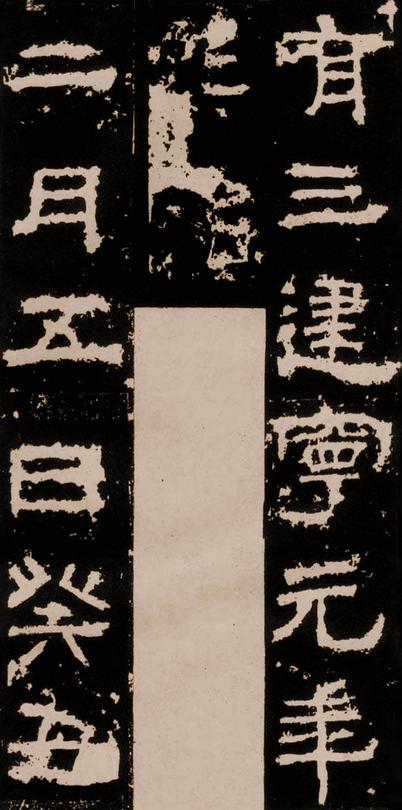 有三建寧元年
二月五日癸丑